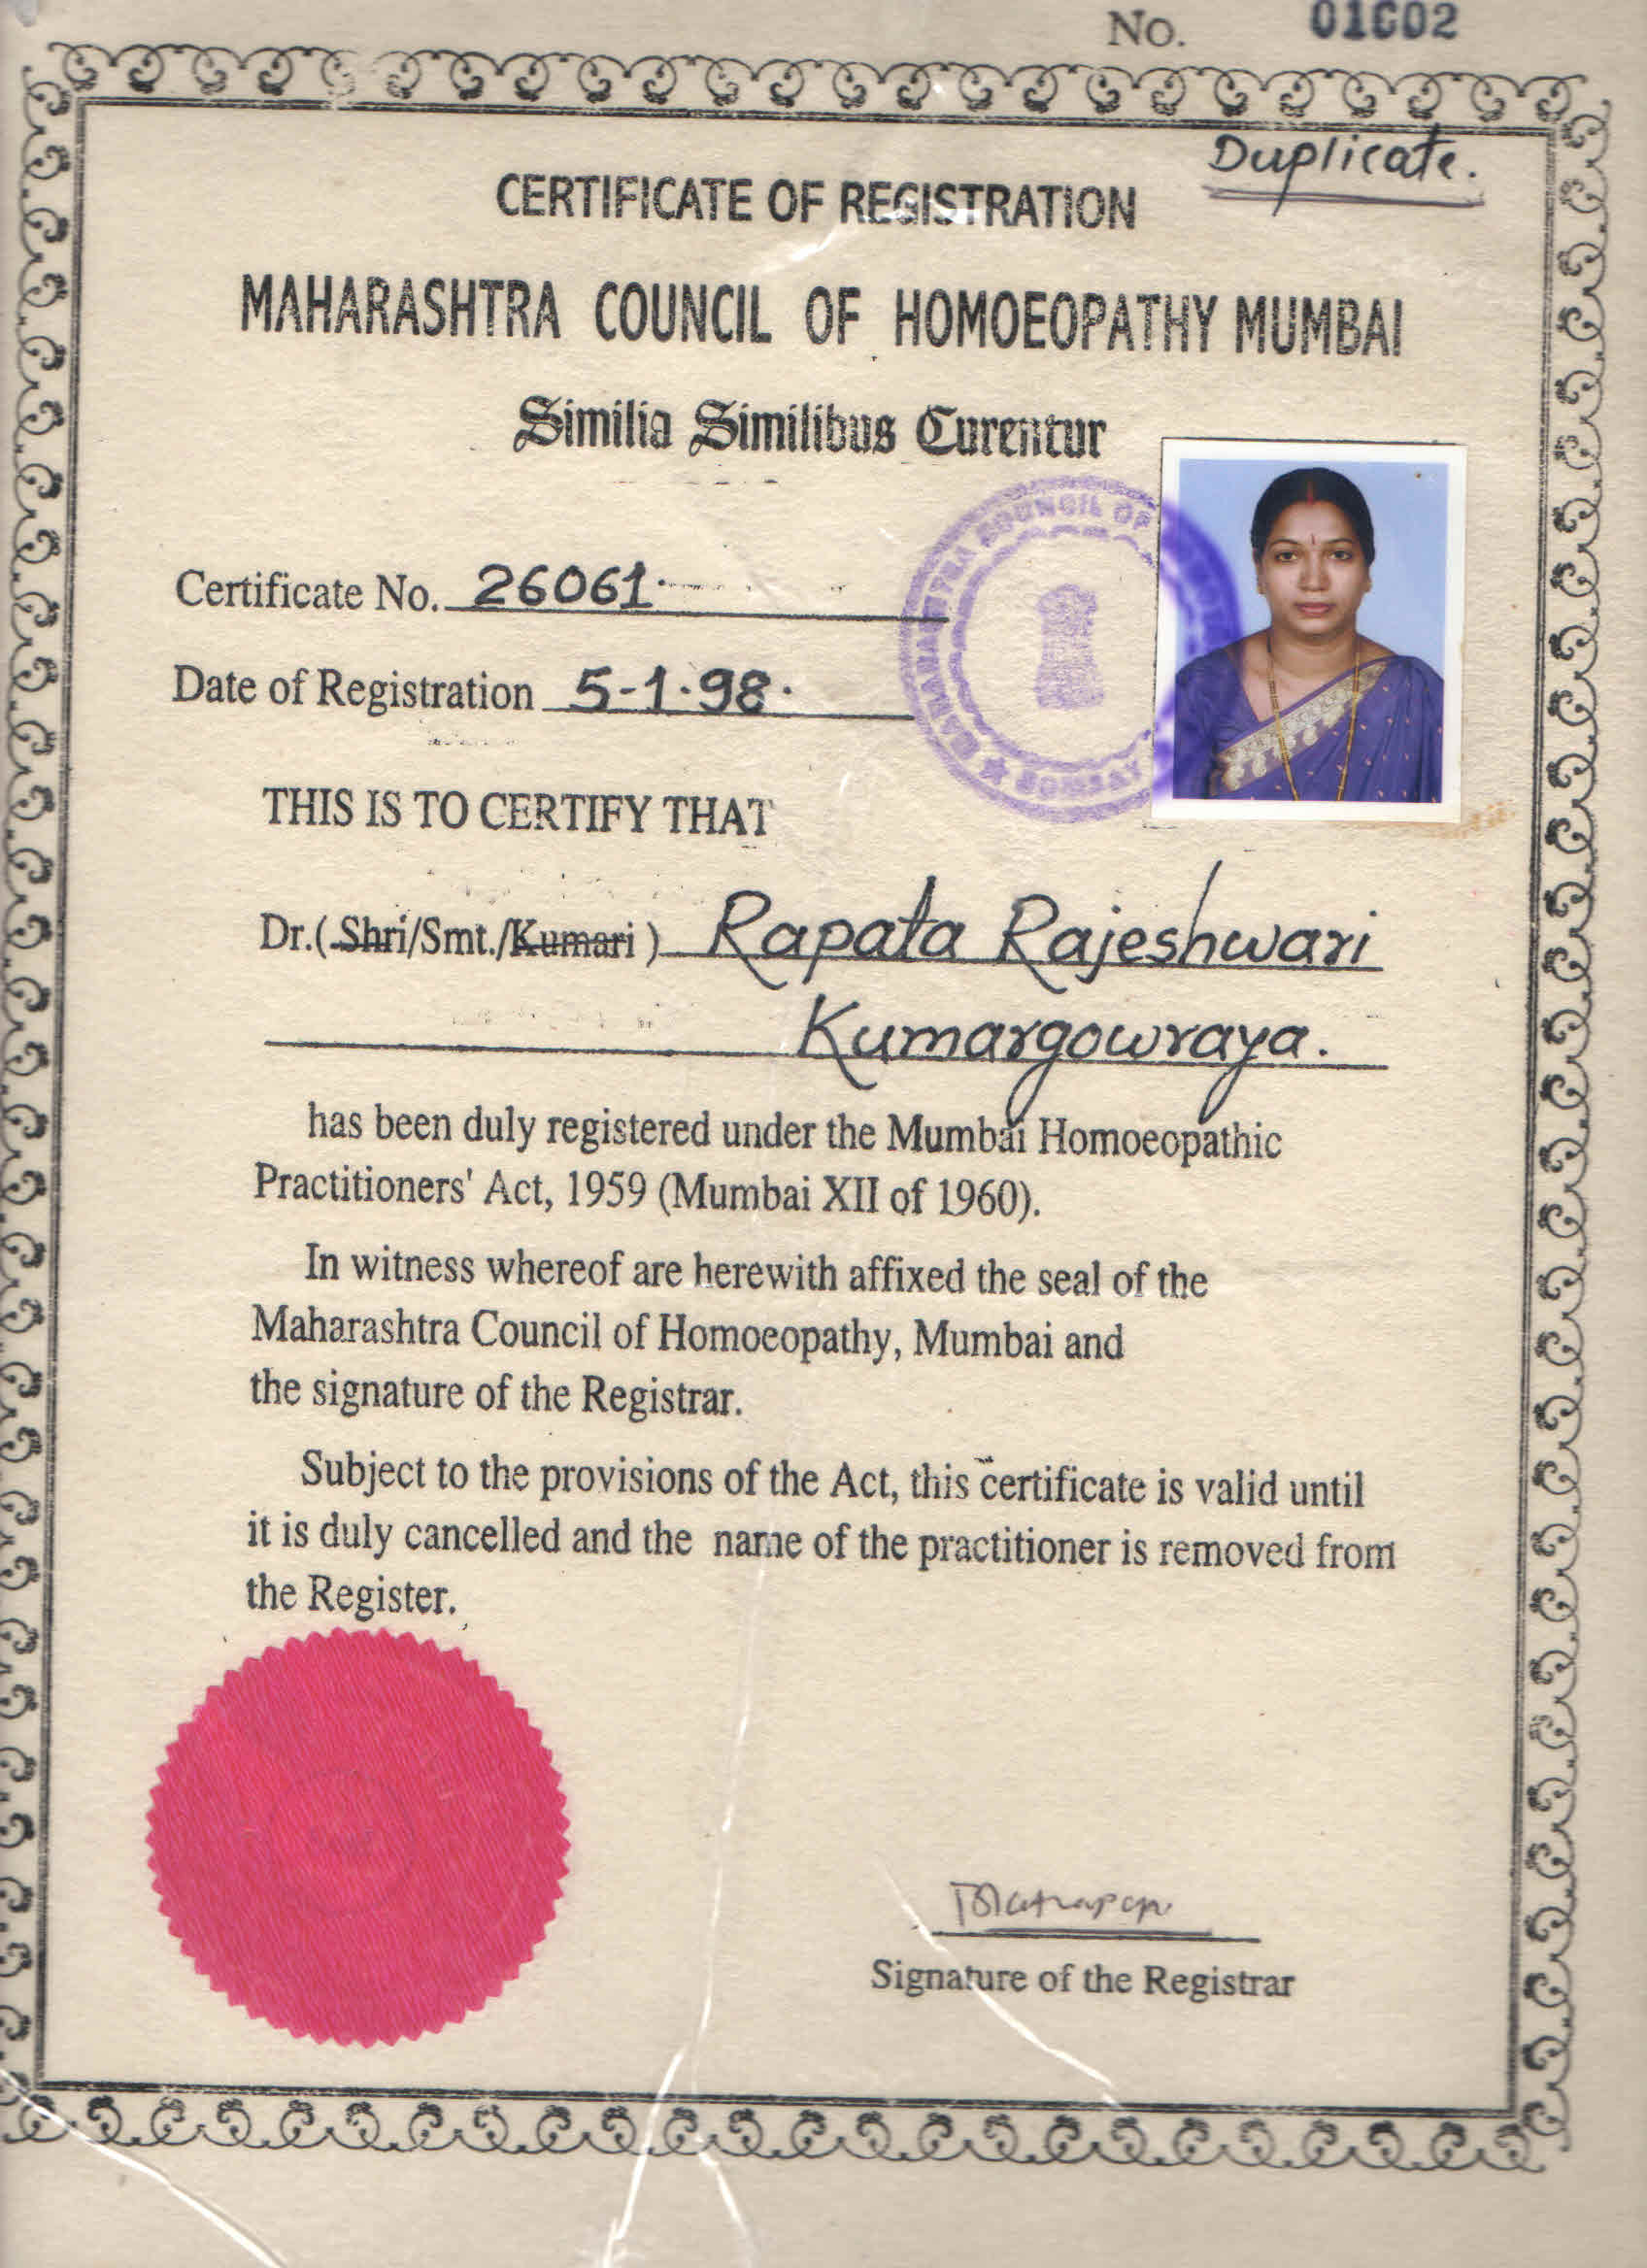 No. 01602
Duplicate.
CERTIFICATE OF REGISTRATION
MAHARASHTRA COUNCIL OF HOMOEOPATHY MUMBAI
Similia Similibus Curentur
MAHARASHTRA COUNCIL OF
BOMBAY
Certificate No. 26061.
Date of Registration 5-1.98.
THIS IS TO CERTIFY THAT
Dr.( Shri/Smt./Kumari ) Rapata Rajeshwari
Kumargowraya.
has been duly registered under the Mumbai Homoeopathic
Practitioners' Act, 1959 (Mumbai XII of 1960).
In witness whereof are herewith affixed the seal of the
Maharashtra Council of Homoeopathy, Mumbai and
the signature of the Registrar.
Subject to the provisions of the Act, this certificate is valid until
it is duly cancelled and the name of the practitioner is removed from
the Register.
Signature of the Registrar